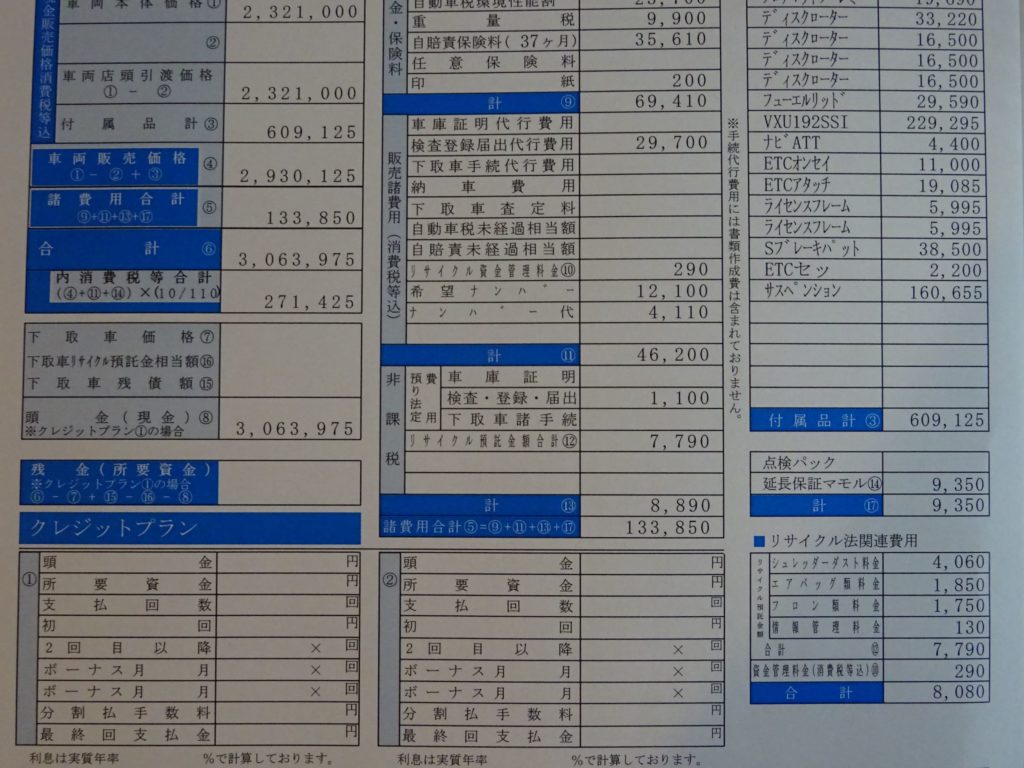 車両本体価格① 2,321,000
②
車両店頭引渡価格
①－② 2,321,000
付属品計③ 609,125
車両販売価格
①－②＋③ ④ 2,930,125
諸費用合計
⑨+⑪+⑬+⑰ ⑤ 133,850
合計 ⑥ 3,063,975
内消費税等合計
(④+⑪+⑭)×(10/110) 271,425
下取車価格⑦
下取車リサイクル預託金相当額⑯
下取車残債額⑮
頭金(現金)⑧
※クレジットプラン①の場合 3,063,975
残金(所要資金)
※クレジットプラン①の場合
⑥－⑦＋⑮－⑯－⑧
クレジットプラン
①
頭金 円
所要資金 円
支払回数 回
初回 円
2回目以降 × 回
ボーナス月 月 × 回
ボーナス月 月 × 回
分割払手数料 円
最終回支払金 円
利息は実質年率 %で計算しております。
金・保険料
自動車税環境性能割
重量税 9,900
自賠責保険料(37ヶ月) 35,610
任意保険料
印紙 200
計 ⑨ 69,410
販売諸費用(消費税等込)
車庫証明代行費用
検査登録届出代行費用 29,700
下取車手続代行費用
納車費用
下取車査定料
自動車税未経過相当額
自賠責未経過相当額
リサイクル資金管理料金⑩ 290
希望ナンバー 12,100
ナンバー代 4,110
計 ⑪ 46,200
非課税
預り法定費用
車庫証明
検査・登録・届出 1,100
下取車諸手続
リサイクル預託金額合計⑫ 7,790
計 ⑬ 8,890
諸費用合計⑤=⑨+⑪+⑬+⑰ 133,850
②
頭金 円
所要資金 円
支払回数 回
初回 円
2回目以降 × 回
ボーナス月 月 × 回
ボーナス月 月 × 回
分割払手数料 円
最終回支払金 円
利息は実質年率 %で計算しております。
※手続代行費用には書類作成費は含まれておりません。
ディスクローター 33,220
ディスクローター 16,500
ディスクローター 16,500
ディスクローター 16,500
フューエルリッド 29,590
VXU192SSI 229,295
ナビATT 4,400
ETCオンセイ 11,000
ETCアタッチ 19,085
ライセンスフレーム 5,995
ライセンスフレーム 5,995
Sブレーキパット 38,500
ETCセッ 2,200
サスペンション 160,655
付属品計③ 609,125
点検パック
延長保証マモル⑭ 9,350
計 ⑰ 9,350
■リサイクル法関連費用
リサイクル預託金額
シュレッダーダスト料金 4,060
エアバッグ類料金 1,850
フロン類料金 1,750
情報管理料金 130
合計 ⑫ 7,790
資金管理料金(消費税等込)⑩ 290
合計 8,080